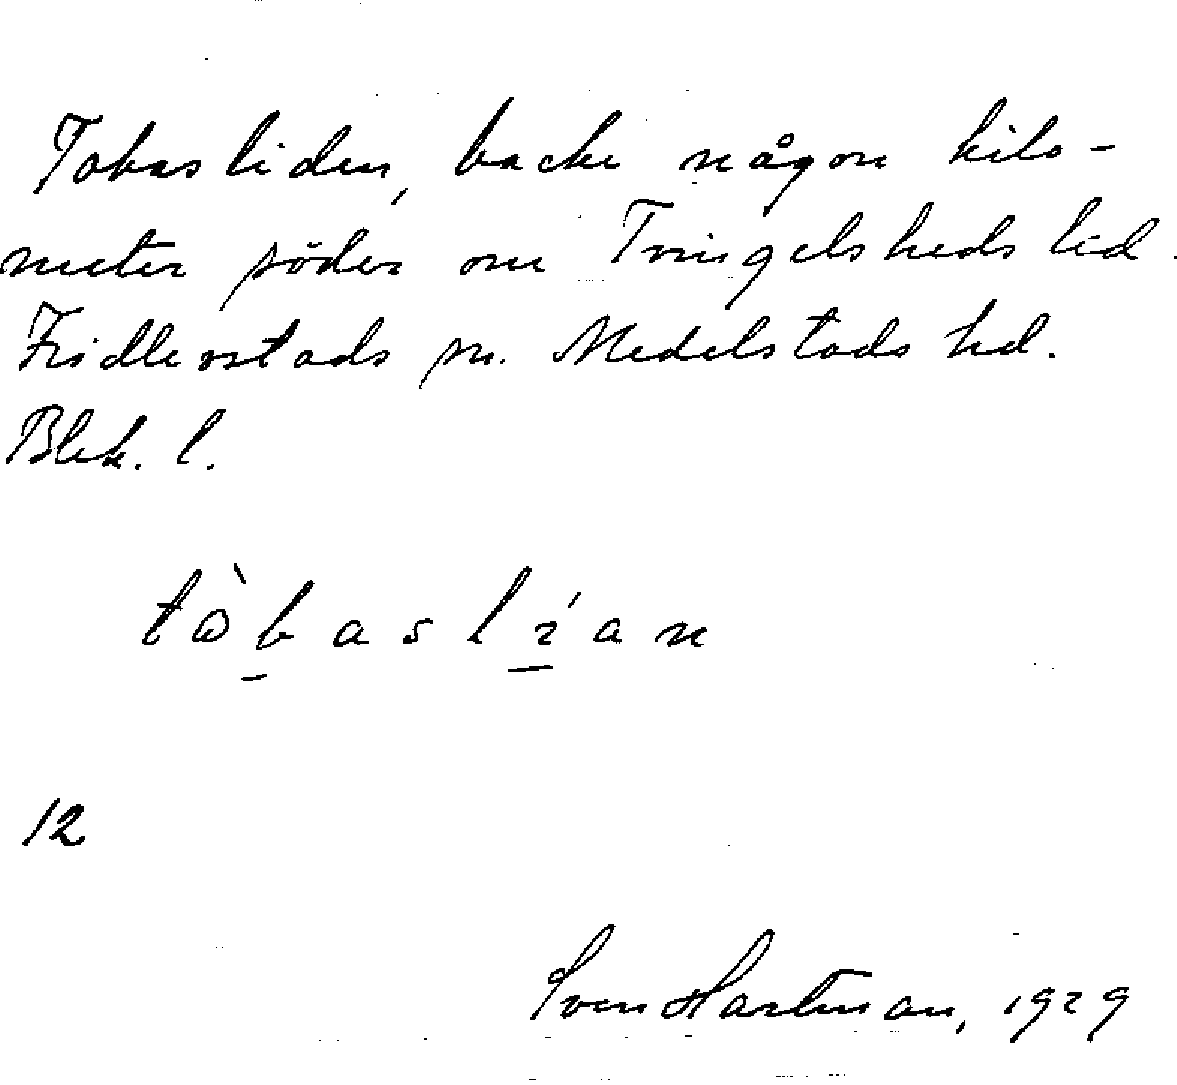 Tobasliden, backe någon kilo-
meter söder om Tvingelsheds lid.
Fridlevstads sn. Medelstads hd.
Blek. l.
tòbaslían
12
Sven Hartman, 1929